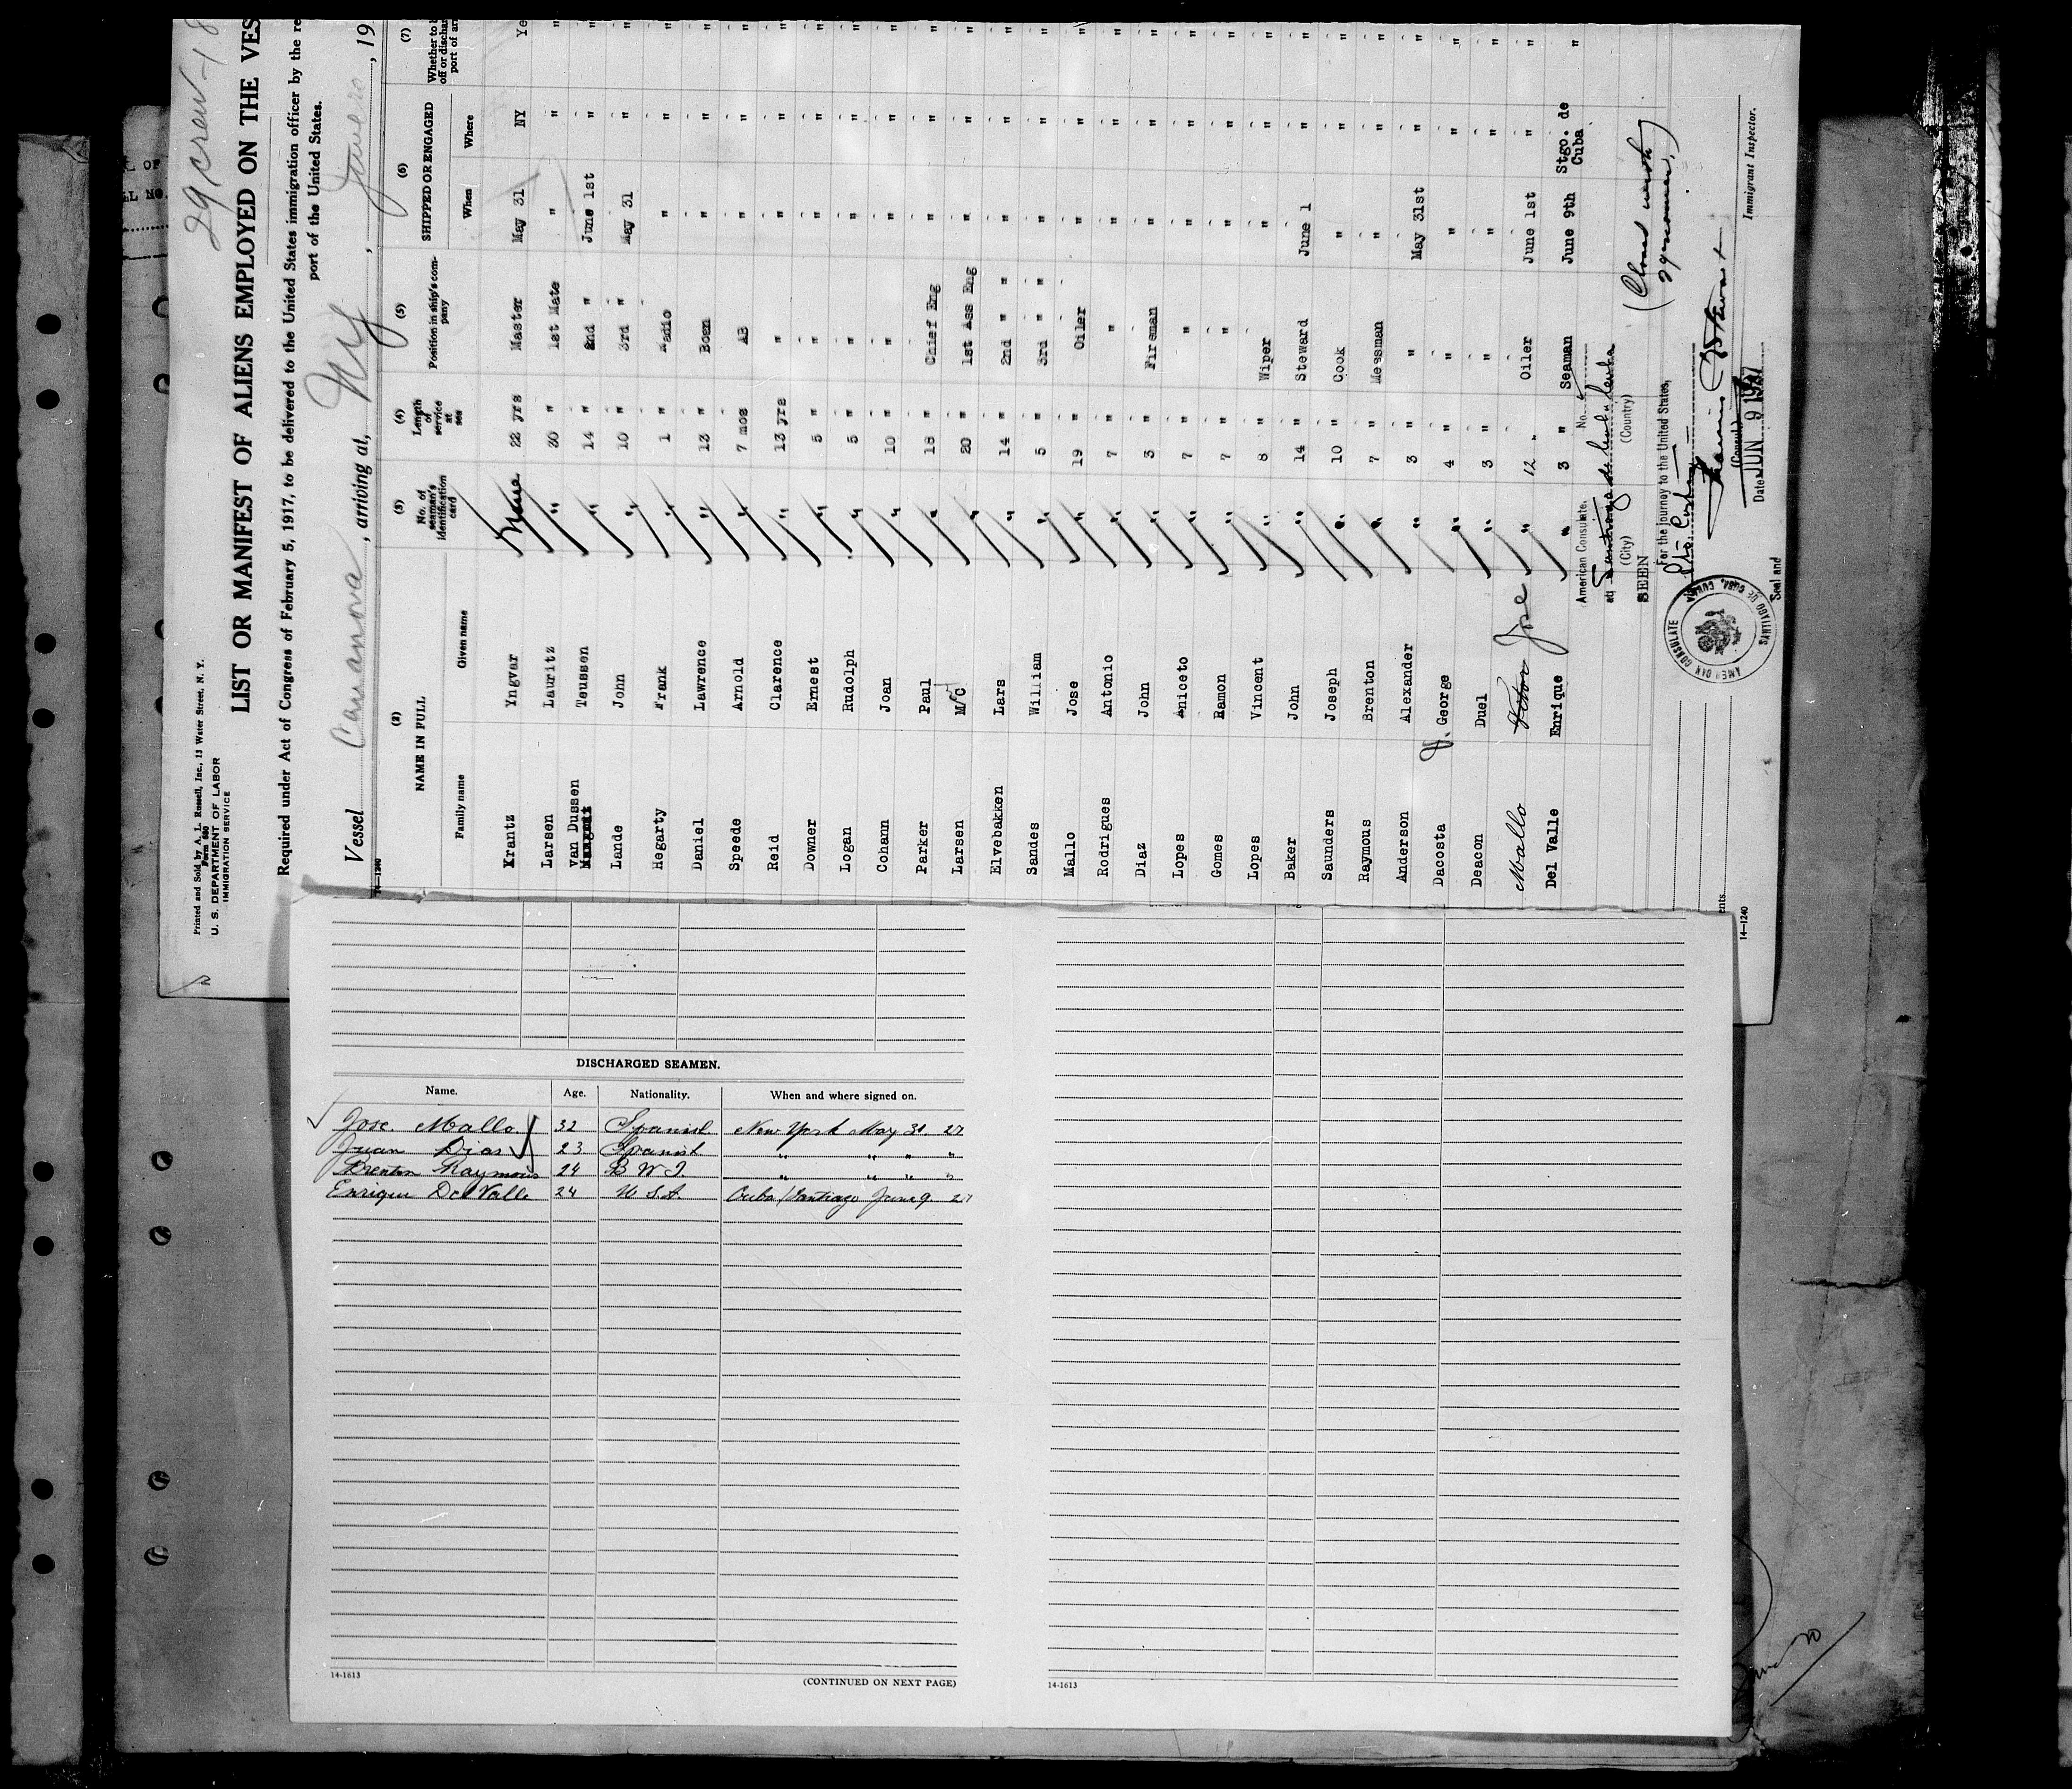 29 crew - 18
Printed and Sold by A. L. Russell, Inc., 13 Water Street, N. Y.
Form 680
U. S. DEPARTMENT OF LABOR
IMMIGRATION SERVICE
LIST OR MANIFEST OF ALIENS EMPLOYED ON THE VES
Required under Act of Congress of February 5, 1917, to be delivered to the United States immigration officer by the re
port of the United States.
Vessel Casanova, arriving at, NY, , 19
14-1240
(2) NAME IN FULL (3) No. of seaman's identification card (4) Length of service at sea (5) Position in ship's company (6) SHIPPED OR ENGAGED (7) Whether to b off or dischar port of ar
Family name Given name When Where
Krantz Yngvar None 22 yrs Master May 31 NY Ye
Larsen Lauritz " 30 " 1st Mate " " "
Van Dussen Teussen " 14 " 2nd " June 1st " "
Lande John " 10 " 3rd " May 31 " "
Hegarty Frank " 1 " Radio " " "
Daniel Lawrence " 13 " Bosn " " "
Speede Arnold " 7 mos AB " " "
Reid Clarence " 13 yrs " " " "
Downer Ernest " 5 " " " " "
Logan Rudolph " 5 " " " " "
Cohann Joan " 10 " " " " "
Parker Paul " 18 " Chief Eng " " "
Larsen M C " 20 " 1st Ass Eng " " "
Elvebakken Lars " 14 " 2nd " " " " "
Sandes William " 5 " 3rd " " " " "
Mallo Jose " 19 " Oiler " " "
Rodrigues Antonio " 7 " " " " "
Diaz John " 3 " Fireman " " "
Lopes Aniceto " 7 " " " " "
Gomes Ramon " 7 " " " " "
Lopes Vincent " 8 " Wiper " " "
Baker John " 14 " Steward June 1 " "
Saunders Joseph " 10 " Cook " " "
Raymous Brenton " 7 " Messman " " "
Anderson Alexander " 3 " " May 31st " "
Dacosta J. George " 4 " " " " "
Deacon Duel " 3 " " " " "
Mallo Jose " 12 " Oiler June 1st " "
Del Valle Enrique " 3 " Seaman June 9th Stgo. de Cuba "
American Consulate. No.
at Santiago de Cuba, Cuba
(City) (Country)
SEEN
(Closed with
29 persons.)
For the journey to the United States,
(Consul)
Date JUN 9 1927
Seal and
AMERICAN CONSULATE
SANTIAGO DE CUBA, CUBA
Immigrant Inspector.
ents
14-1240
DISCHARGED SEAMEN.
Name. Age. Nationality. When and where signed on.
Jose Mallo 32 Spanish New York May 31 27
Juan Dias 23 Spanish " " " "
Brenton Raymous 24 B W I " " " "
Enrique Del Valle 24 U.S.A. Cuba/Santiago June 9. 27
14-1613
(CONTINUED ON NEXT PAGE)
14-1613